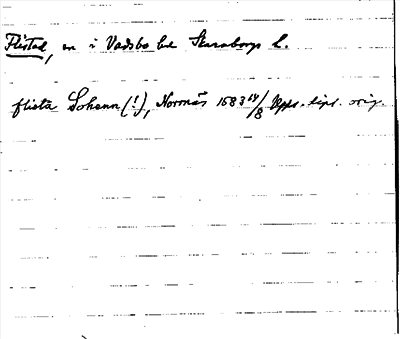 Flistad, sn i Vadsbo hd Skaraborgs l.
flista Sohenn (!), Norrnäs 1683 24/8 Upps. dipl. orig.